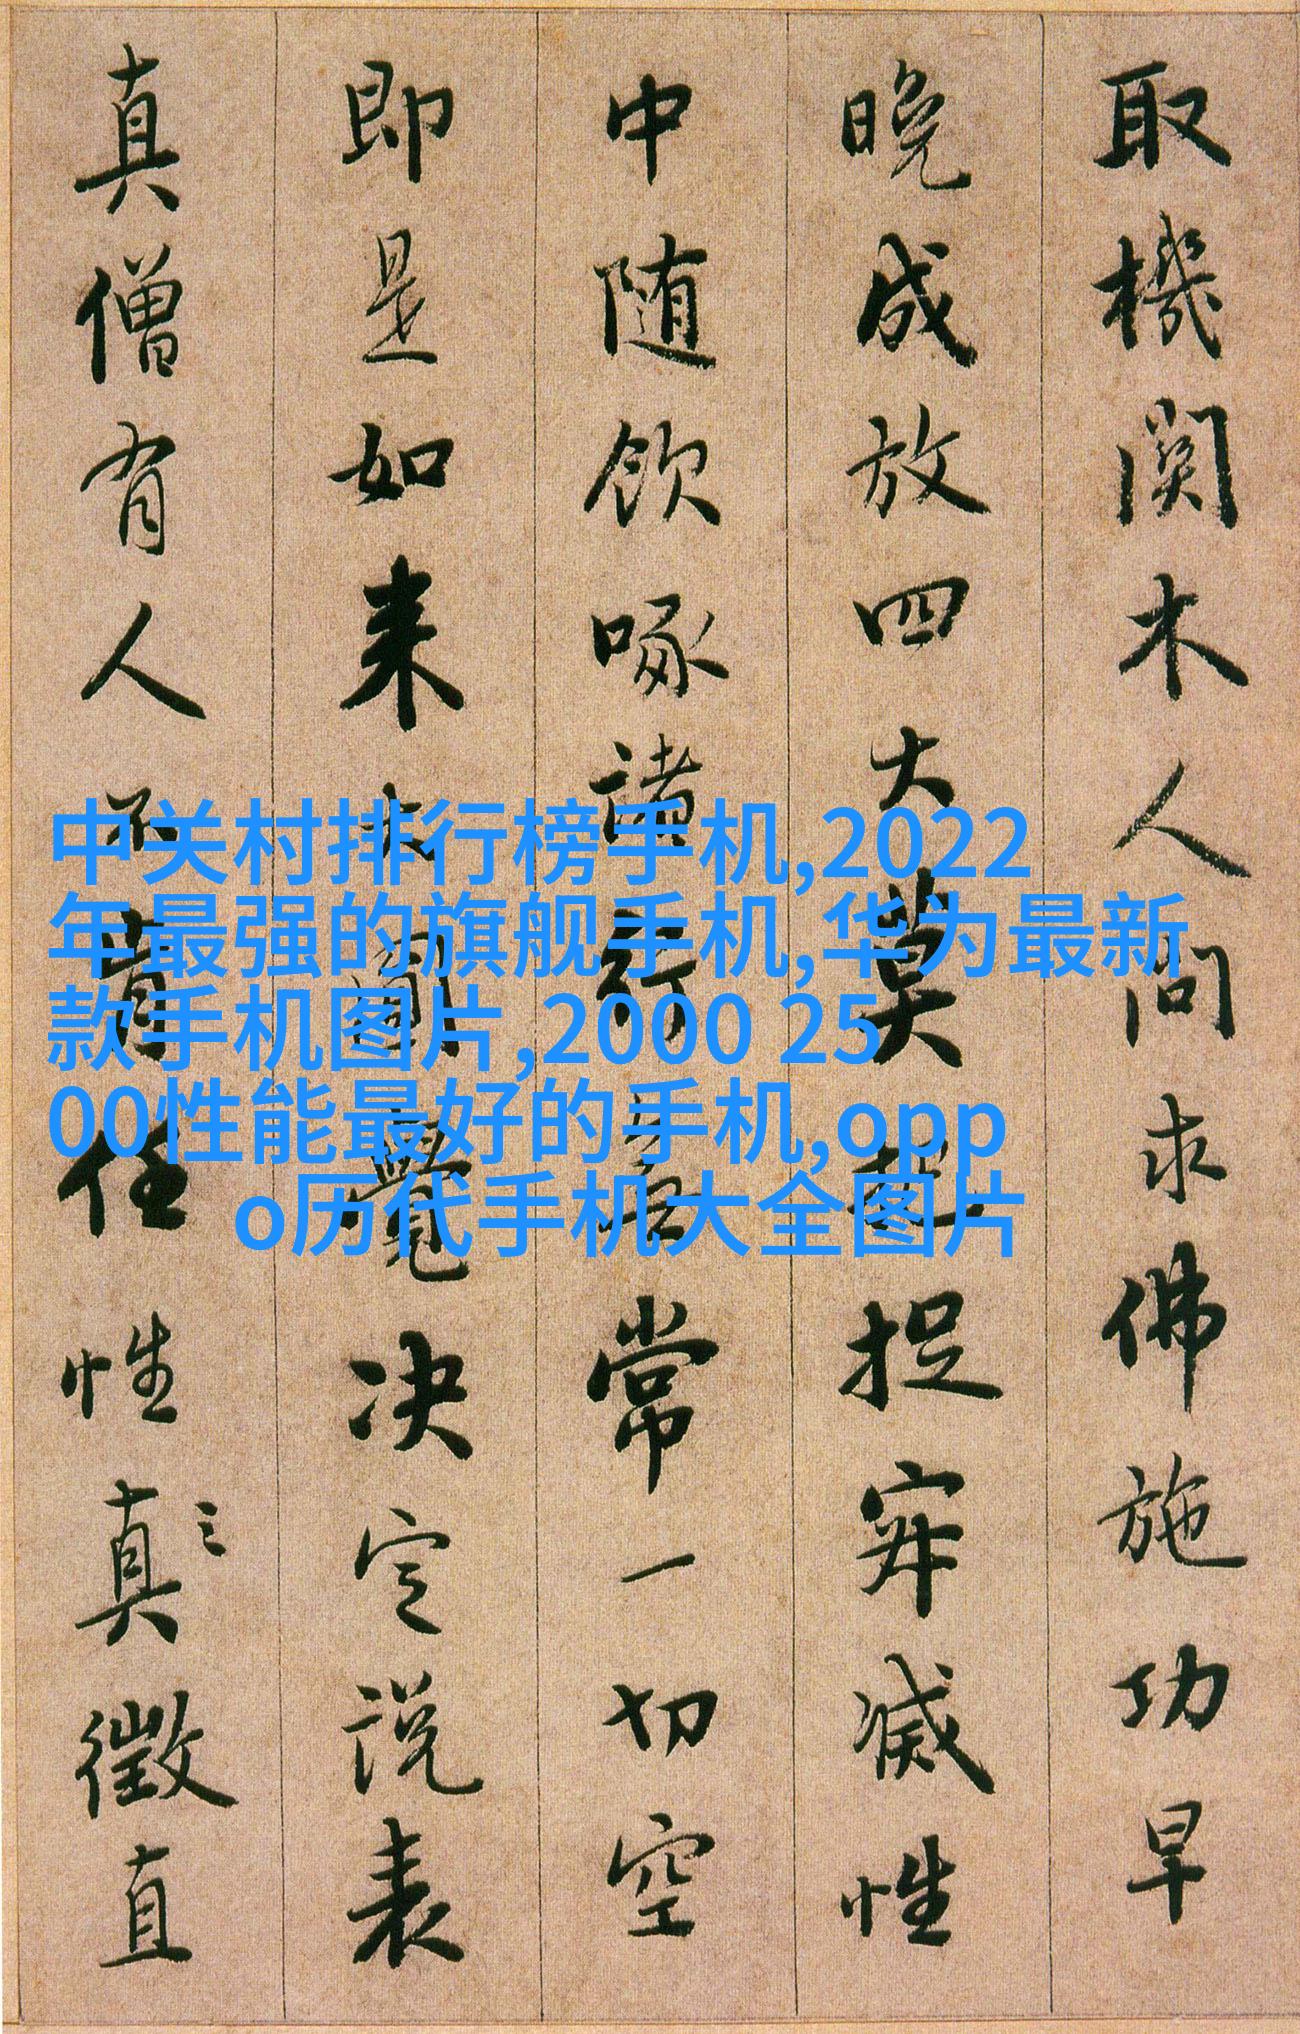 取機関木人問求佛施功早
晚成放四大莫把捉寂滅性
中随飲啄諸行無常一切空
即是如来大圓覺决定説表
真僧有人不肯任性真徵直
之
中关村排行榜手机,2022
年最强的旗舰手机,华为最新
款手机图片,2000 25
00性能最好的手机,opp
o历代手机大全图片